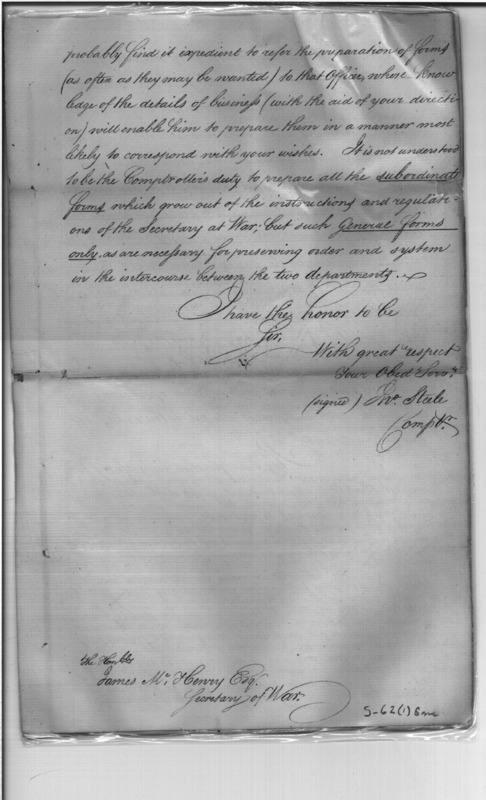 probably find it expedient to refer the preparation of forms
(as often as they may be wanted) to that Office, whose know
ledge of the details of business (with the aid of your directi-
on) will enable him to prepare them in a manner most
likely to correspond with your wishes. It is not understood
to be the Comptroller's duty to prepare all the subordinate
forms which grow out of the instructions and regulati-
ons of the Secretary at War; but such General forms
only, as are necessary for preserving order and system
in the intercourse between the two departments.
I have the honor to be
Sir,
With great respect
Your Obedt Servt
(signed) Jno. Steele
Comptr.
The Honble
James Mc. Henry Esqr.
Secretary of War.
S-62(1)